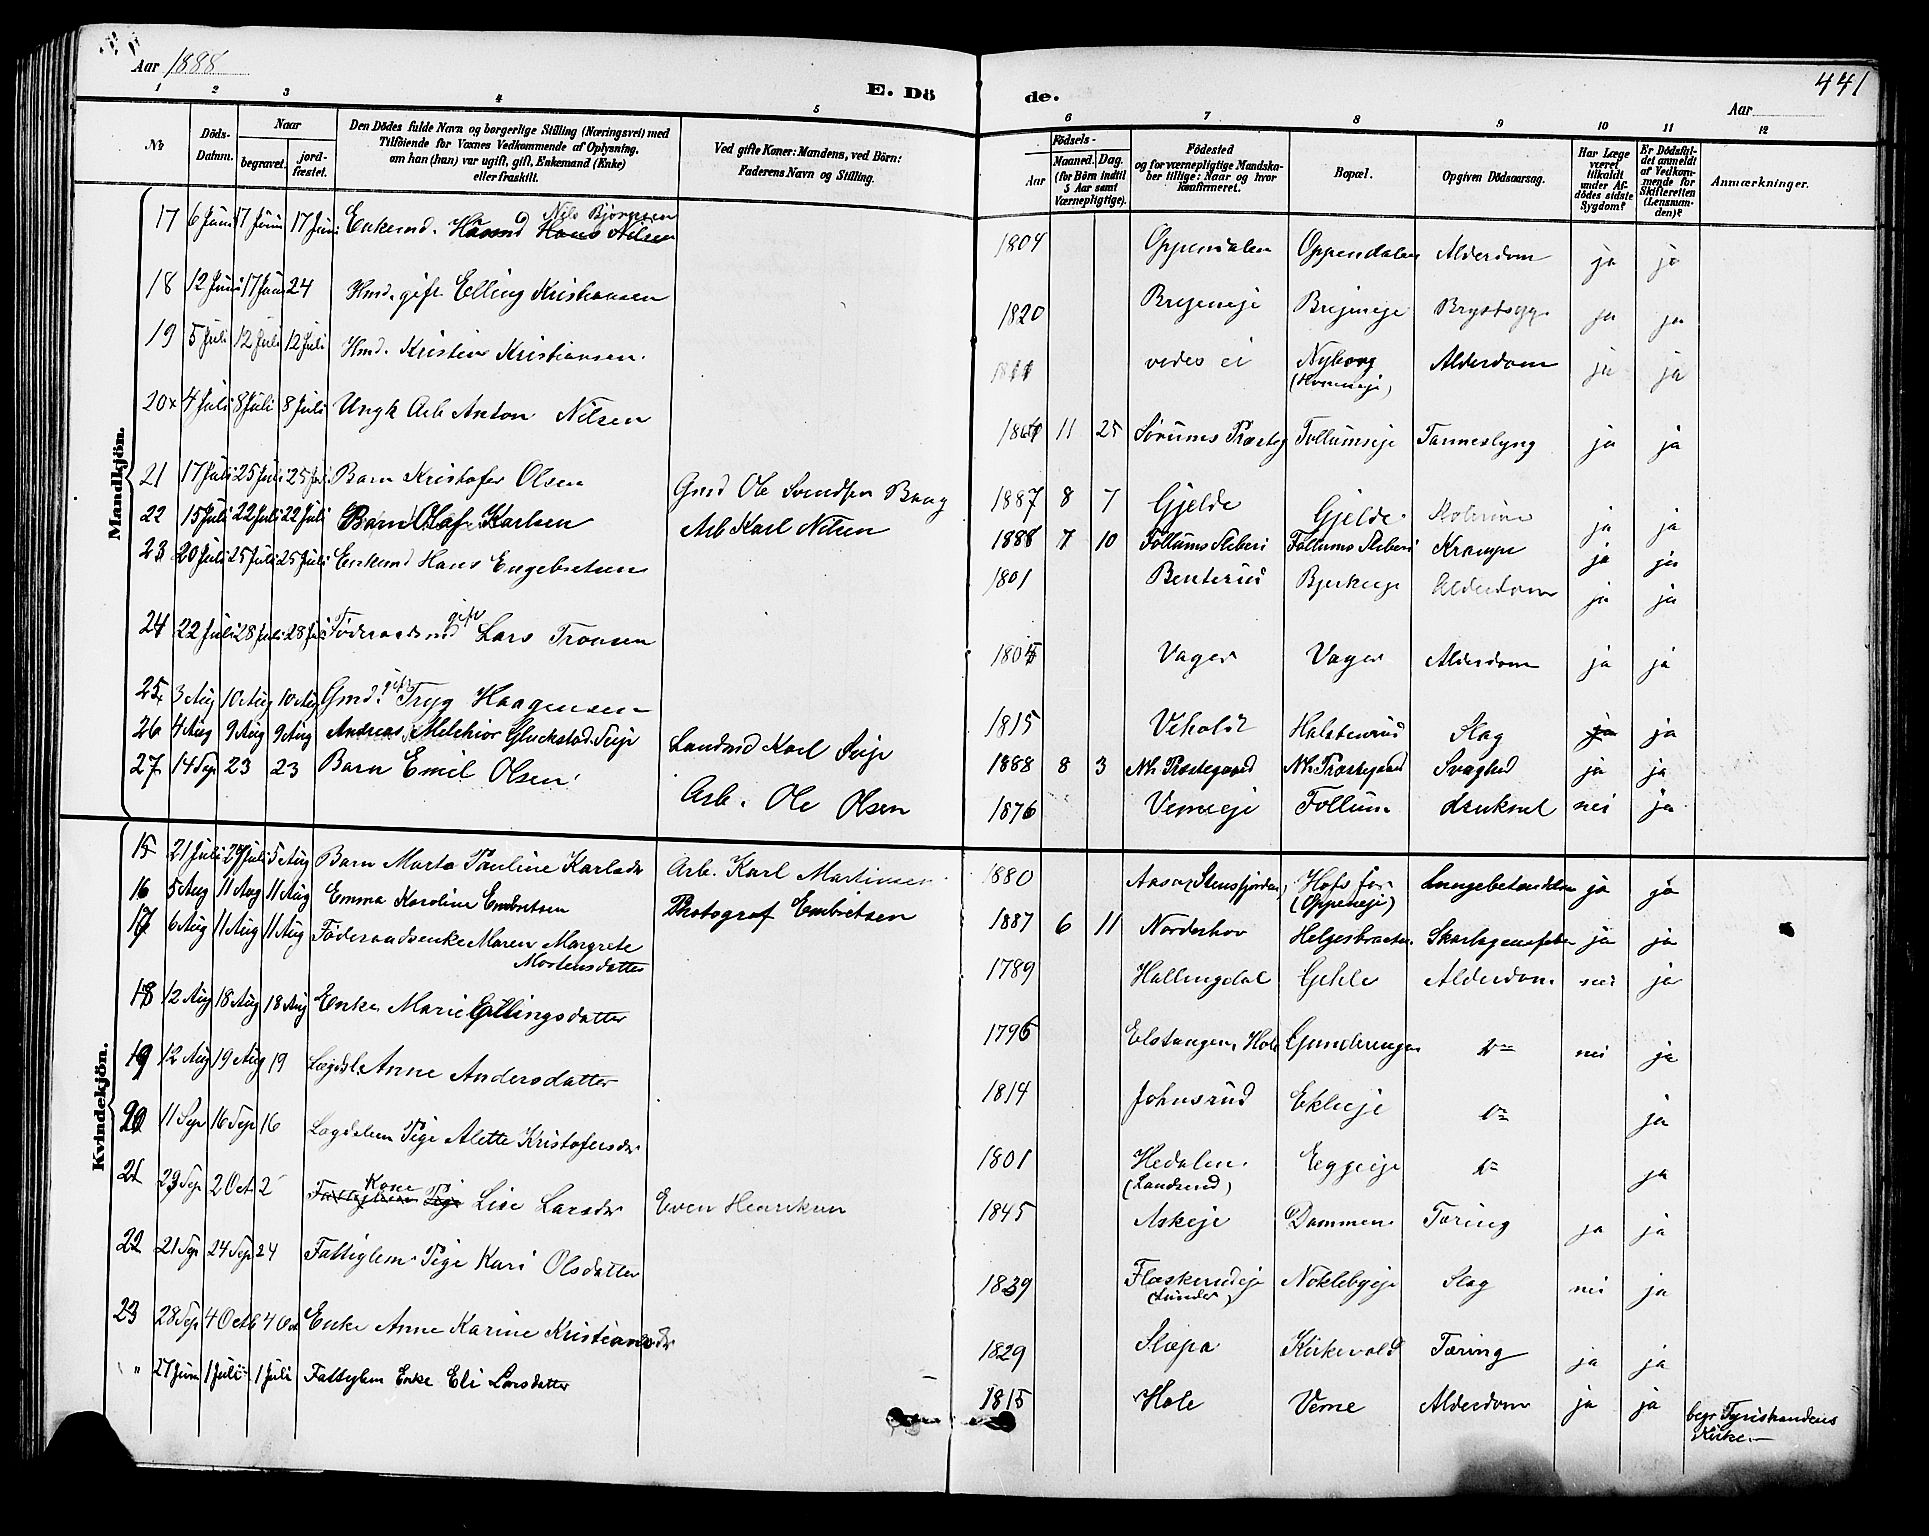 Aar 1888
E. Dö de.
441
Aar
1 2 3 4 5 6 7 8 9 10 11 12
No
Döds-Datum.
Naar
begravet.
jord-fæstet.
Den Dödes fulde Navn og borgerlige Stilling (Næringsvei) med
Tilföiende for Voxnes Vedkommende af Oplysning,
om han (hun) var ugift, gift, Enkemand (Enke)
eller fraskilt.
Ved gifte Koner: Mandens, ved Börn:
Faderens Navn og Stilling.
Födsels-
Aar
Maaned. Dag.
(for Börn indtil
5 Aar samt
Værnepligtige).
Födested
og for værnepligtige Mandska-
ber tillige: Naar og hvor
Konfirmeret.
Bopæl.
Opgiven Dödsaarsag.
Har Læge
været
tilkaldt
under Af-
dödes sidste
Sygdom?
Er Dödsfal-
det anmeldt
af Vedkom-
mende for
Skifteretten
(Lensman-
den)?
Anmærkninger.
Mandkjön.
17 6 Juni 17 Juni 17 Juni Enkemd. Nils Bjørnsen Hans Nilsen 1804 Oppendalen Oppendalen Alderdom ja ja
18 12 Juni 17 Juni 24 Hmd. gift Elling Kristiansen 1820 Bryneeje Bryneeje Brystsyg. ja ja
19 5 Juli 12 Juli 12 Juli Hmd. Kristen Kristiansen. 1811 vides ei Nyborg Alderdom ja ja
20 4 Juli 8 Juli 8 Juli Ungk Arb Anton Nilsen 11 25 Sørums Præsteg Follumseje ja ja
21 17 Juli 25 Juli 25 Juli Barn Kristofer Olsen Gmd Ole Svendsen Baug 1887 8 7 Gjelde Gjelde Kolerine ja ja
22 15 Juli 22 Juli 22 Juli Barn Olaf Karlsen Arb Karl Nilsen 1888 7 10 Follums Sliberi Follums Sliberi Krampe ja ja
23 20 Juli 25 Juli 25 Juli Enkemd Hans Engebretsen 1801 Benterud Bjerkeeje Alderdom ja ja
24 22 Juli 28 Juli 28 Juli Föderaadsmd gift Lars Troasen 1805 Vager Vager Alderdom ja ja
25 3 Aug 10 Aug 10 Aug Gmd. gift Tryg Haagensen 1815 Veholdt Halstenrud Slag ja ja
26 4 Aug 9 Aug 9 Aug Andreas Melchior Gluckstad Seije Landmd Karl Seije 1888 8 3 Nh. Præstegaard Nh. Præstegaard Svaghed ja ja
27 14 Sep 23 23 Barn Emil Olsen Arb. Ole Olsen 1876 Verneeje Follum druknet nei ja
Kvindekjön.
15 21 Juli 29 Juli 5 Aug Barn Marta Pauline Karlsdr Arb. Karl Martinsen 1880 Aasa (Stensfjorden) Hofs for- (Oppeneje) Lungebetændelse ja ja
16 5 Aug 11 Aug 11 Aug Emma Karoline Embretsen Photograf Embretsen 1887 6 11 Norderhov Helgesbraaten Skarlagensfeber ja ja
17 6 Aug 11 Aug 11 Aug Föderaadsenke Maren Margrete
Mortensdatter 1789 Hallingdal Gehle Alderdom nei ja
18 12 Aug 18 Aug 18 Aug Enke Marie Ellingsdatter 1796 Elstangen, Hole nei ja
19 12 Aug 19 Aug 19 Lægdsl. Anne Andersdatter 1814 Johnsrud Ekleeje ja
20 11 Sep 16 Sep 16 Lægdslem Pige Alette Kristofersdr. 1801 Hedalen (Landsend) Eggeeje ja
21 23 Sep 2 Oct 2 Kone Fattiglem Pige Lise Larsdr Even Henriksen 1845 Askeje Dammen Tæring ja ja
22 21 Sep 24 Sep 24 Fattiglem Pige Kari Olsdatter 1839 Flaskerudeje (Lunder) Noklebyeje Slag nei ja
23 28 Sep 4 Oct 4 Oct Enke Anne Karine Kristiansdr 1829 Slæpa Kirkevold Tæring ja ja
" 27 Juni 1 Juli 1 Juli Fattiglem Enke Eli Larsdatter 1815 Hole Verne Alderdom ja ja begr Tyristrandens
Kirke.